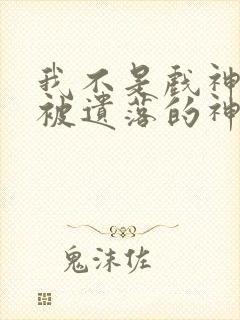 我不是戏神
被遗落的神
鬼沫佐